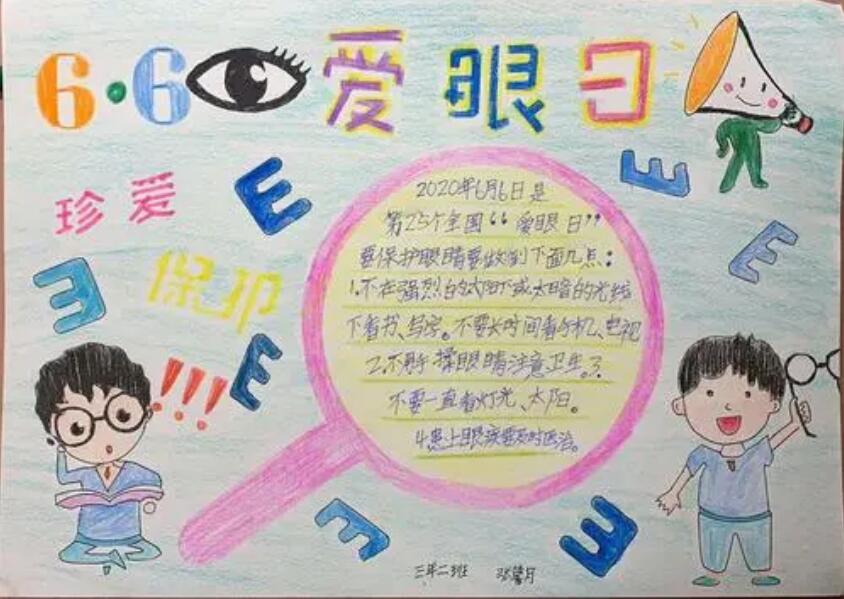 6·6 爱眼日
珍爱
保护
E
E
E
E
E
E
E
E
!!!
2020年6月6日是
第25个全国“爱眼日”
要保护眼睛要做到下面几点：
1.不在强烈的太阳下或太暗的光线
下看书、写字。不要长时间看手机、电视
2.不用手揉眼睛注意卫生。3.
不要一直看灯光、太阳。
4患上眼疾要及时医治。
三年二班